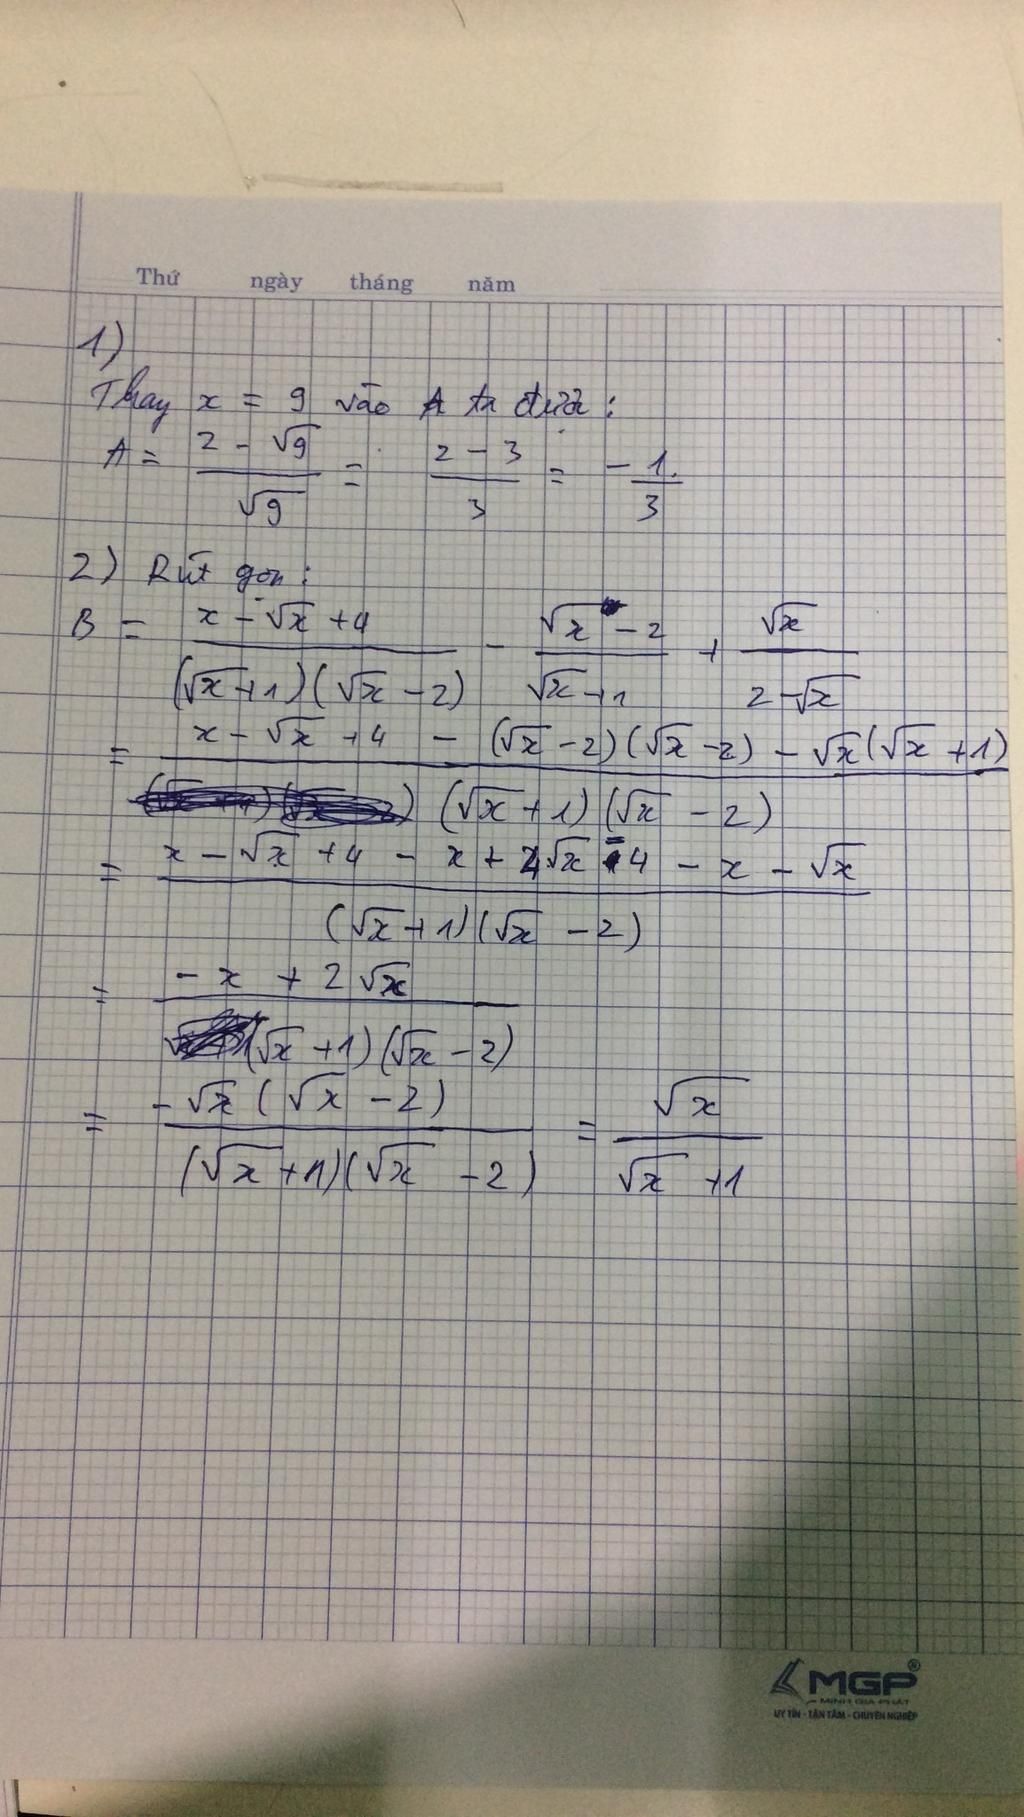 Thứ ngày tháng năm
1)
Thay x = 9 vào A ta được:
A = (2 - √9)/√9 = (2 - 3)/3 = -1/3
2) Rút gọn:
B = (x - √x + 4)/((√x + 1)(√x - 2)) - (√x - 2)/(√x + 1) + √x/(2 - √x)
= (x - √x + 4 - (√x - 2)(√x - 2) - √x(√x + 1))/((√x + 1)(√x - 2))
= (x - √x + 4 - x + 4√x - 4 - x - √x)/((√x + 1)(√x - 2))
= (-x + 2√x)/((√x + 1)(√x - 2))
= (-√x(√x - 2))/((√x + 1)(√x - 2)) = √x/(√x + 1)
MGP®
MINH GIA PHÁT
UY TÍN - TẬN TÂM - CHUYÊN NGHIỆP